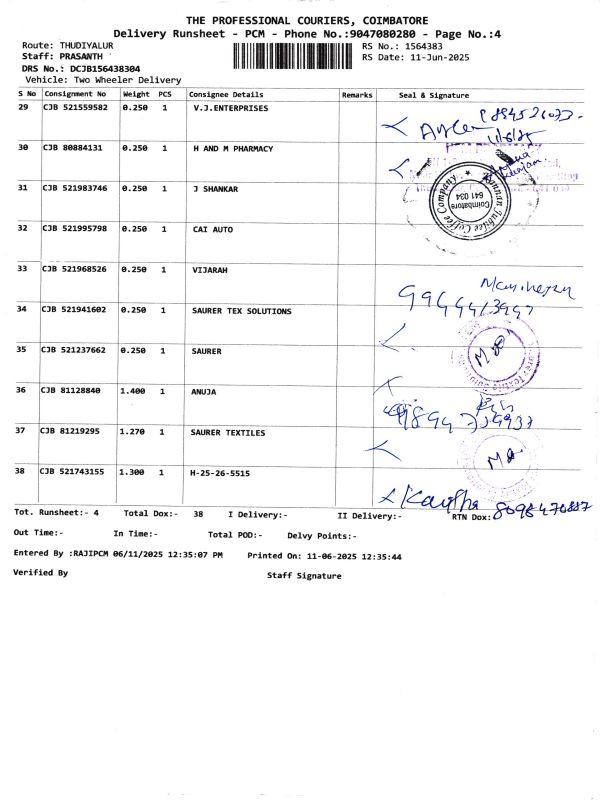 THE PROFESSIONAL COURIERS, COIMBATORE
Delivery Runsheet - PCM - Phone No.:9047080280 - Page No.:4
Route: THUDIYALUR
RS No.: 1564383
Staff: PRASANTH
RS Date: 11-Jun-2025
DRS No.: DCJB156438304
Vehicle: Two Wheeler Delivery
S No Consignment No Weight PCS Consignee Details Remarks Seal & Signature
29 CJB 521559582 0.250 1 V.J.ENTERPRISES
30 CJB 80884131 0.250 1 H AND M PHARMACY
31 CJB 521983746 0.250 1 J SHANKAR
Kannan Jubilee Coffee Company
Coimbatore
641 034
32 CJB 521995798 0.250 1 CAI AUTO
33 CJB 521968526 0.250 1 VIJARAH
34 CJB 521941602 0.250 1 SAURER TEX SOLUTIONS
35 CJB 521237662 0.250 1 SAURER
36 CJB 81128840 1.400 1 ANUJA
37 CJB 81219295 1.270 1 SAURER TEXTILES
38 CJB 521743155 1.300 1 H-25-26-5515
Tot. Runsheet:- 4 Total Dox:- 38 I Delivery:- II Delivery:- RTN Dox:
Out Time:- In Time:- Total POD:- Delvy Points:-
Entered By :RAJIPCM 06/11/2025 12:35:07 PM Printed On: 11-06-2025 12:35:44
Verified By Staff Signature